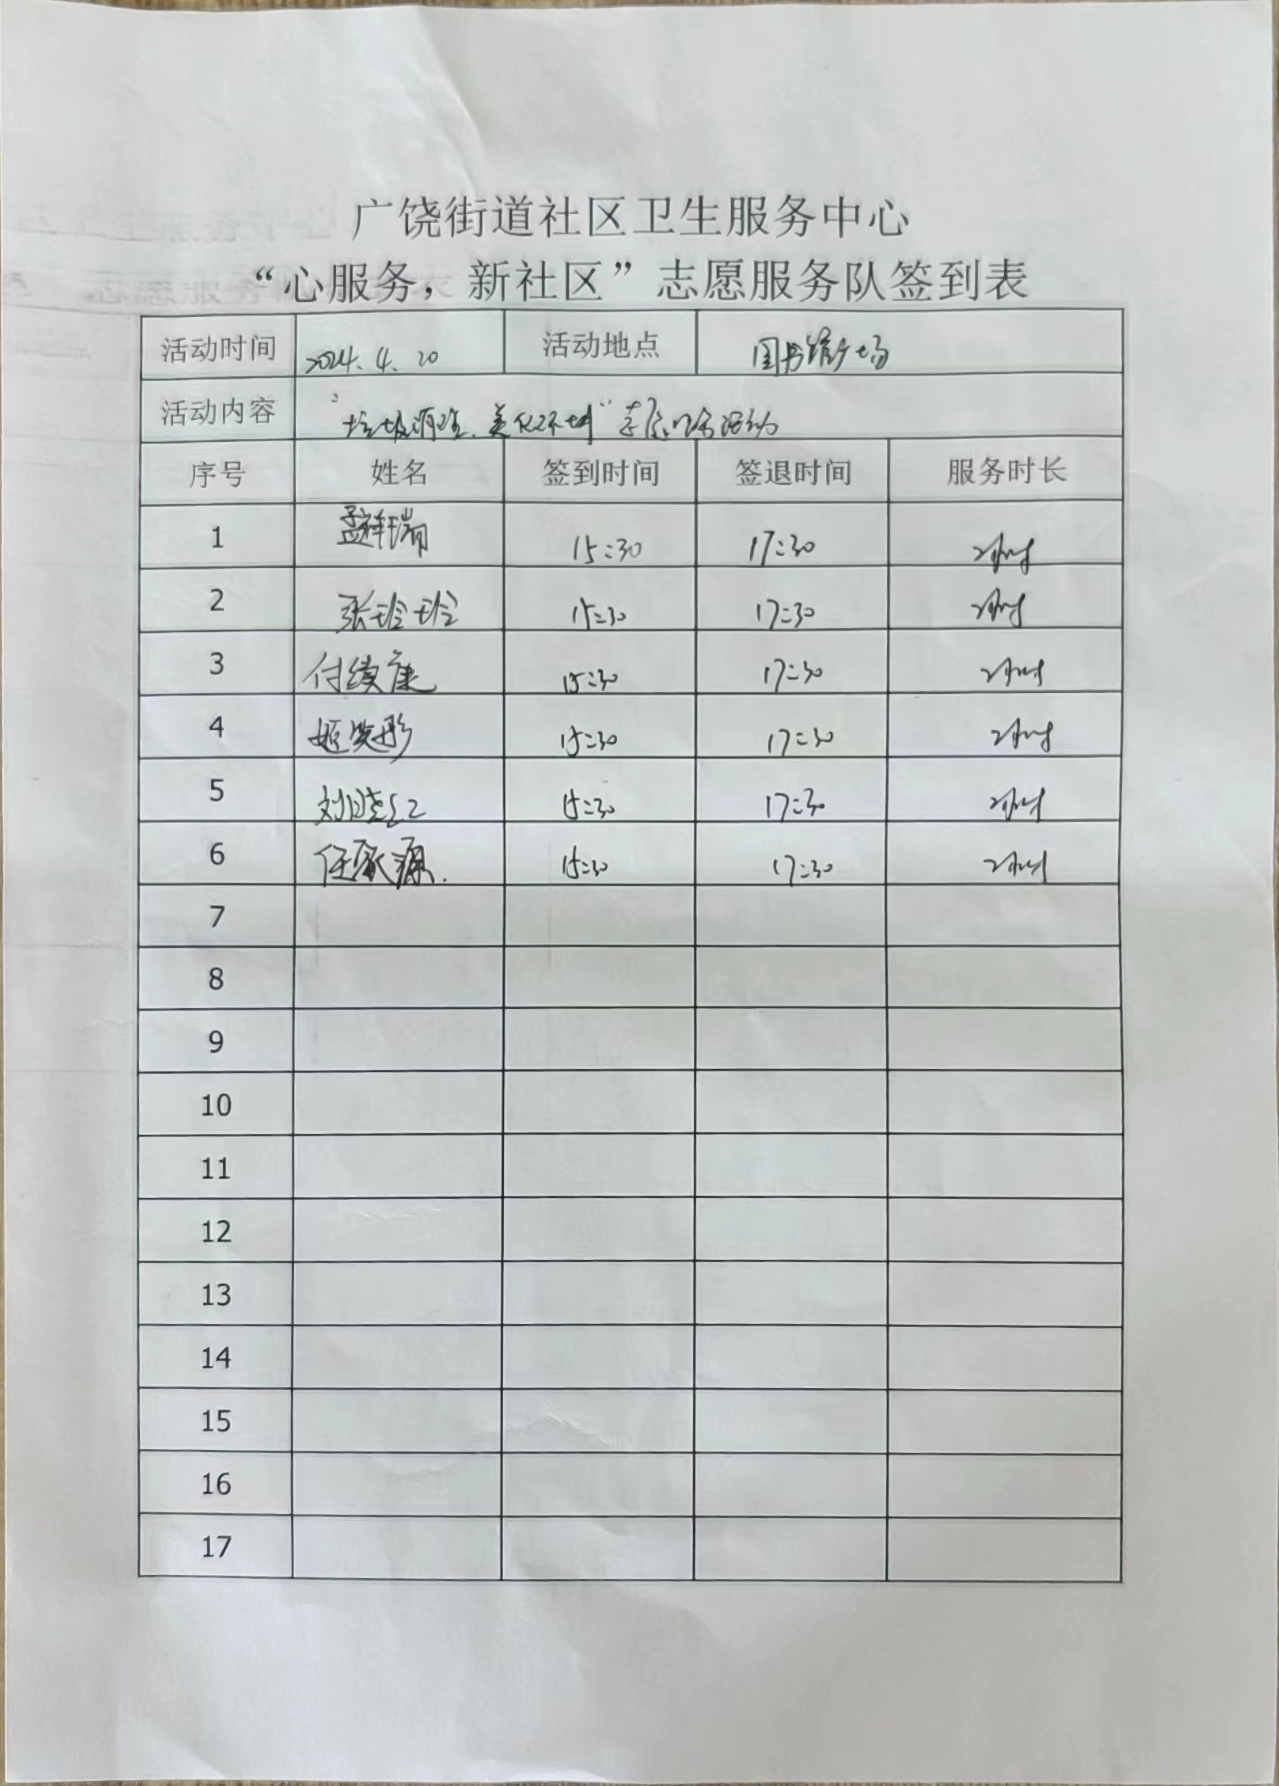 广饶街道社区卫生服务中心
“心服务，新社区”志愿服务队签到表
活动时间 2024.4.20 活动地点 图书馆广场
活动内容 “垃圾清理、美化环境” 志愿服务活动
序号 姓名 签到时间 签退时间 服务时长
1 孟祥瑞 15:30 17:30 2小时
2 张玲玲 15:30 17:30 2小时
3 付绩康 15:30 17:30 2小时
4 姬笑彤 15:30 17:30 2小时
5 刘晓红 15:30 17:30 2小时
6 任承源 15:30 17:30 2小时
7
8
9
10
11
12
13
14
15
16
17